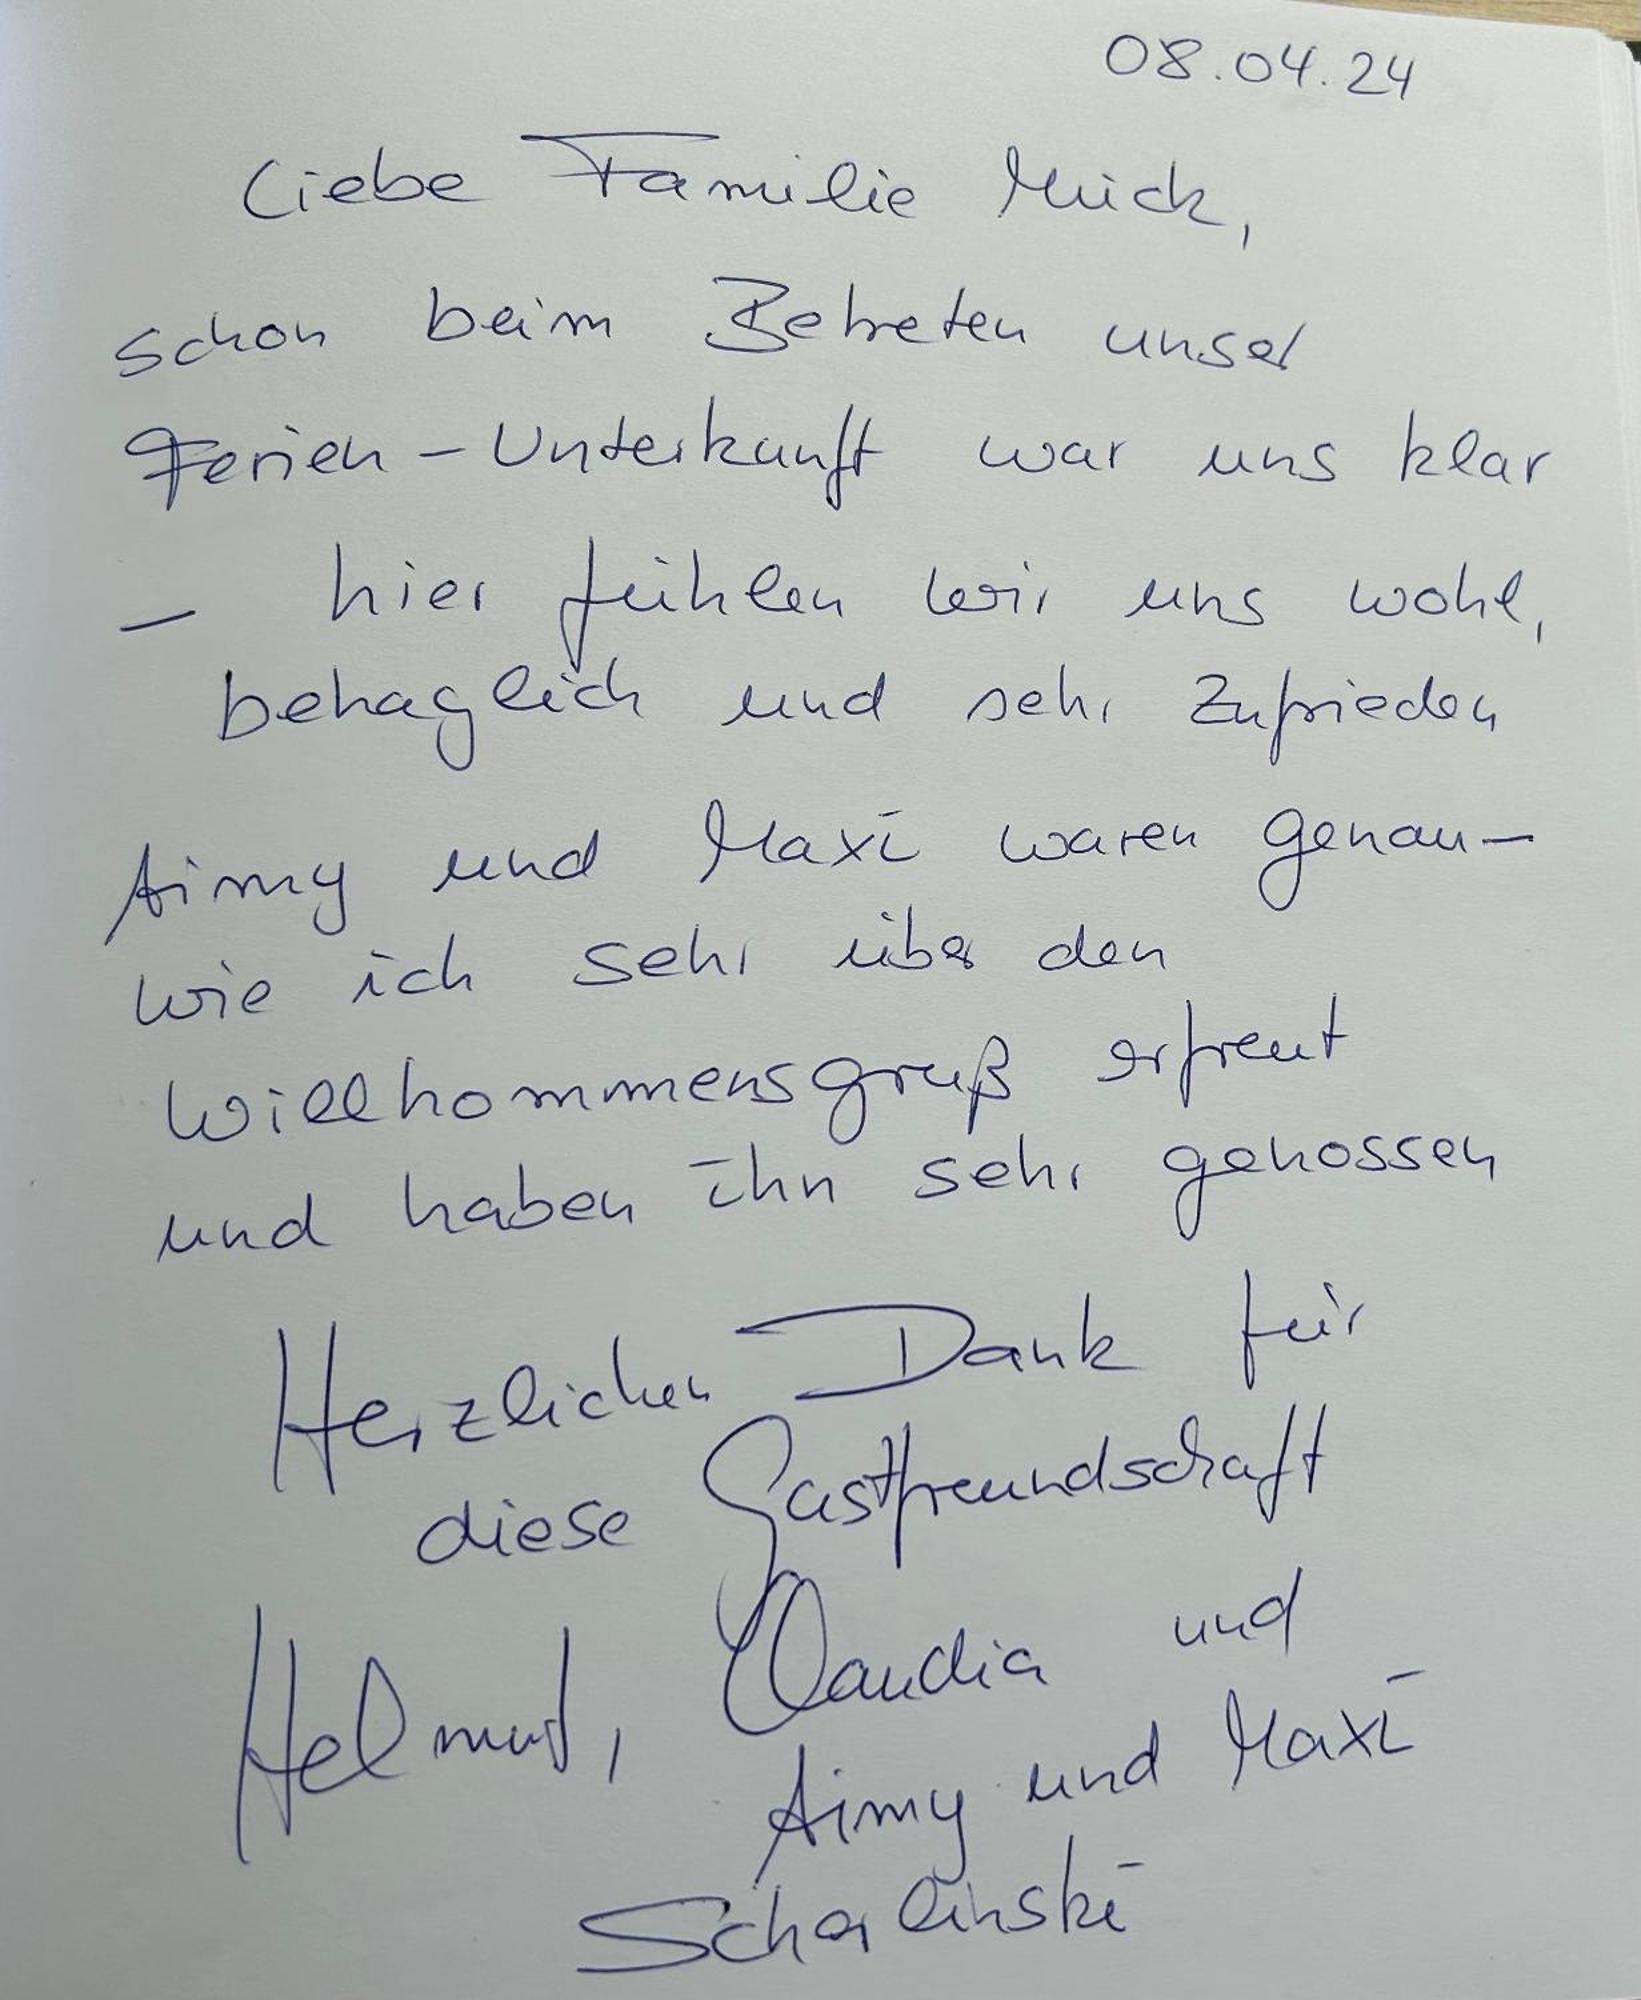 08.04.24
Liebe Familie Mück,
schon beim Betreten unser
Ferien-Unterkunft war uns klar
- hier fühlen wir uns wohl,
behaglich und sehr zufrieden
Aimy und Maxi waren genau-
wie ich sehr über den
Willkommensgruß erfreut
und haben ihn sehr genossen
Herzlichen Dank für
diese Gastfreundschaft
Helmut, Claudia und
Aimy und Maxi
Scharlinski